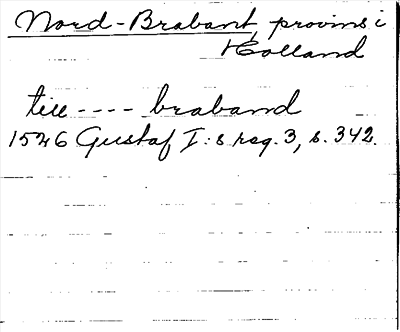 Nord-Brabant, provins i
Holland
till ---- braband
1526 Gustaf I:s reg. 3, s. 342.